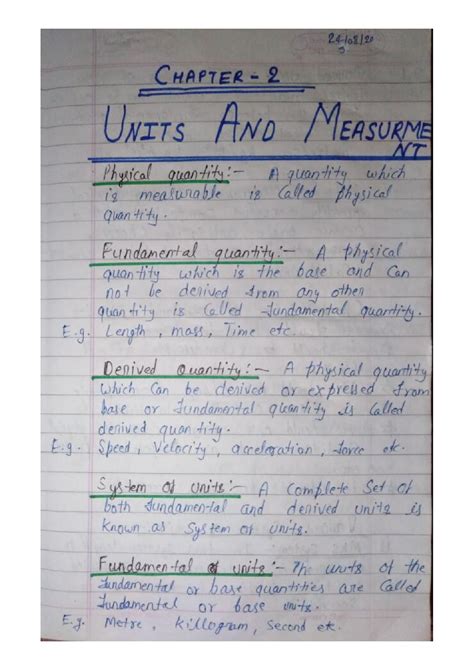 24/08/20
CHAPTER - 2
UNITS AND MEASURME
NT
Physical quantity:- A quantity which
is measurable is called physical
quantity.
Fundamental quantity:- A physical
quantity which is the base and can
not be derived from any other
quantity is called fundamental quantity.
E.g. Length, mass, Time etc.
Derived Quantity:- A physical quantity
which can be derived or expressed from
base or fundamental quantity is called
derived quantity.
E.g. Speed, Velocity, acceleration, force etc.
System of units:- A complete set of
both fundamental and derived units is
known as system of units.
Fundamental of units:- The units of the
fundamental or base quantities are called
fundamental or base units.
E.g. Metre, killogram, second etc.